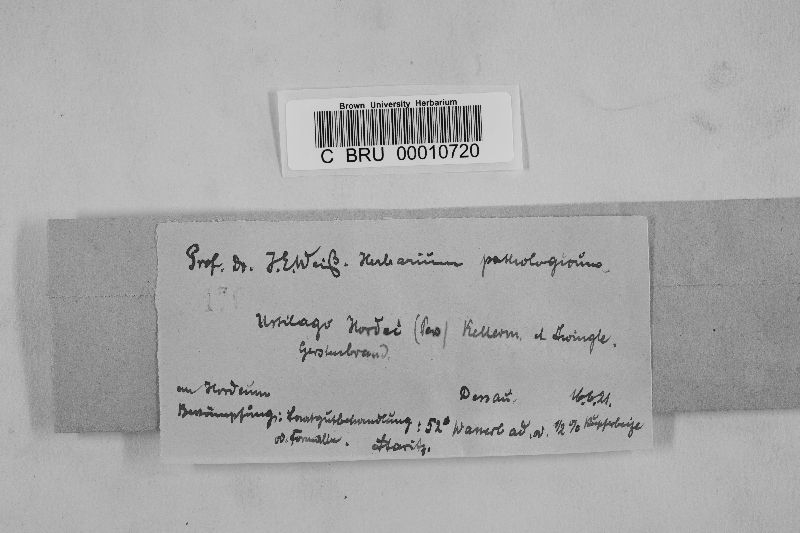 Brown University Herbarium
C BRU 00010720
Prof. Dr. J.E. Weiß. Herbarium pathologicum.
17
Ustilago Hordei (Pers) Kellerm. et Swingle.
Gerstenbrand.
an Hordeum
Dessau.
Bekämpfung: Saatgutbehandlung: 52° Wasserbad, od. 1/2 % Kupferbeize
od. Formalin. Staritz.